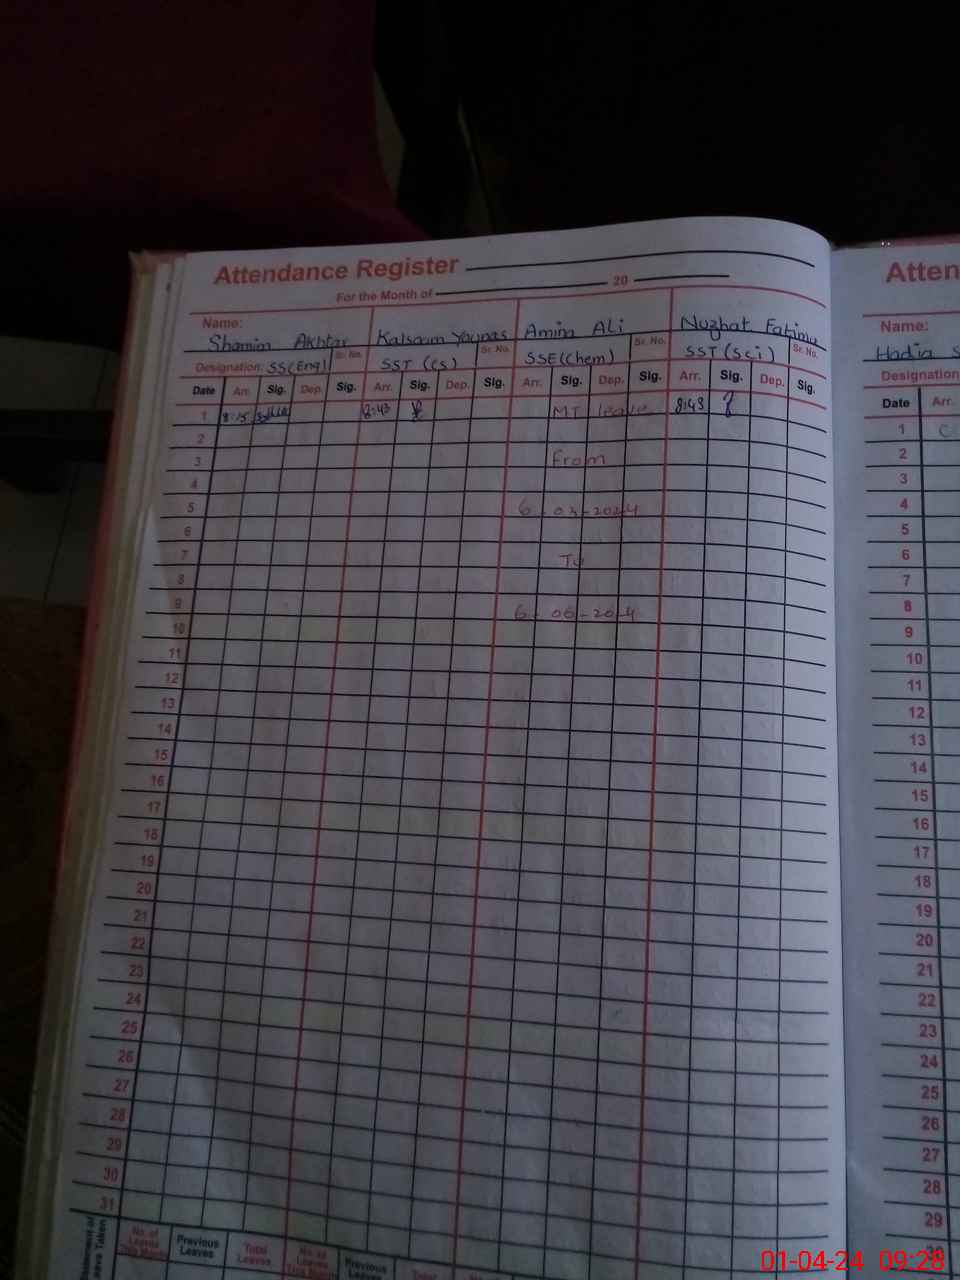 Attendance Register
For the Month of 20
Name:
Shamim Akhtar Kalsoum Younas Amina Ali Nuzhat Fatima
Sr. No. Sr. No. Sr. No. Sr. No.
Designation: SS(Eng) SST (CS) SSE(Chem) SST (Sci)
Date Arr. Sig. Dep. Sig. Arr. Sig. Dep. Sig. Arr. Sig. Dep. Sig. Arr. Sig. Dep. Sig.
1 8:15 8:43 MT leave 8:43
2
3 From
4
5 6-03-2024
6
7 To
8
9 6-06-2024
10
11
12
13
14
15
16
17
18
19
20
21
22
23
24
25
26
27
28
29
30
31
No. of Leaves This Month Previous Leaves Total Leaves No. of Leaves This Month Previous Leaves Total
Atten
Name:
Hadia S
Designation
Date Arr.
1 C
2
3
4
5
6
7
8
9
10
11
12
13
14
15
16
17
18
19
20
21
22
23
24
25
26
27
28
29
30
01-04-24 09:28